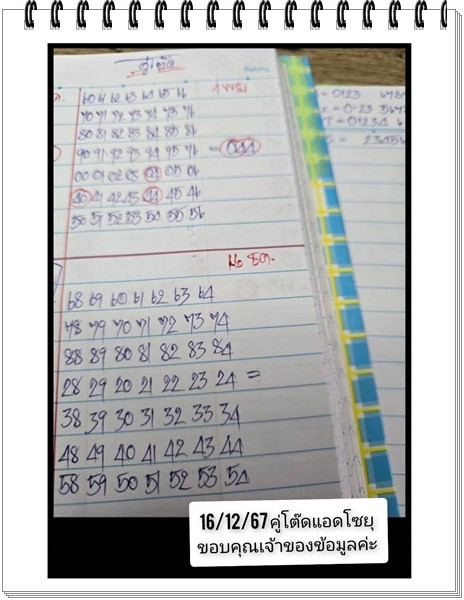 คู่โต๊ด
60 61 62 63 64 65 66
70 71 72 73 74 75 76
80 81 82 83 84 85 86
90 91 92 93 94 95 96 = 044
00 01 02 03 04 05 06
40 41 42 43 44 45 46
50 51 52 53 54 55 56
68 69 60 61 62 63 64
78 79 70 71 72 73 74
88 89 80 81 82 83 84
28 29 20 21 22 23 24 =
38 39 30 31 32 33 34
48 49 40 41 42 43 44
58 59 50 51 52 53 54
= 0123
16/12/67 คู่โต๊ดแอดโซยุ
ขอบคุณเจ้าของข้อมูลค่ะ